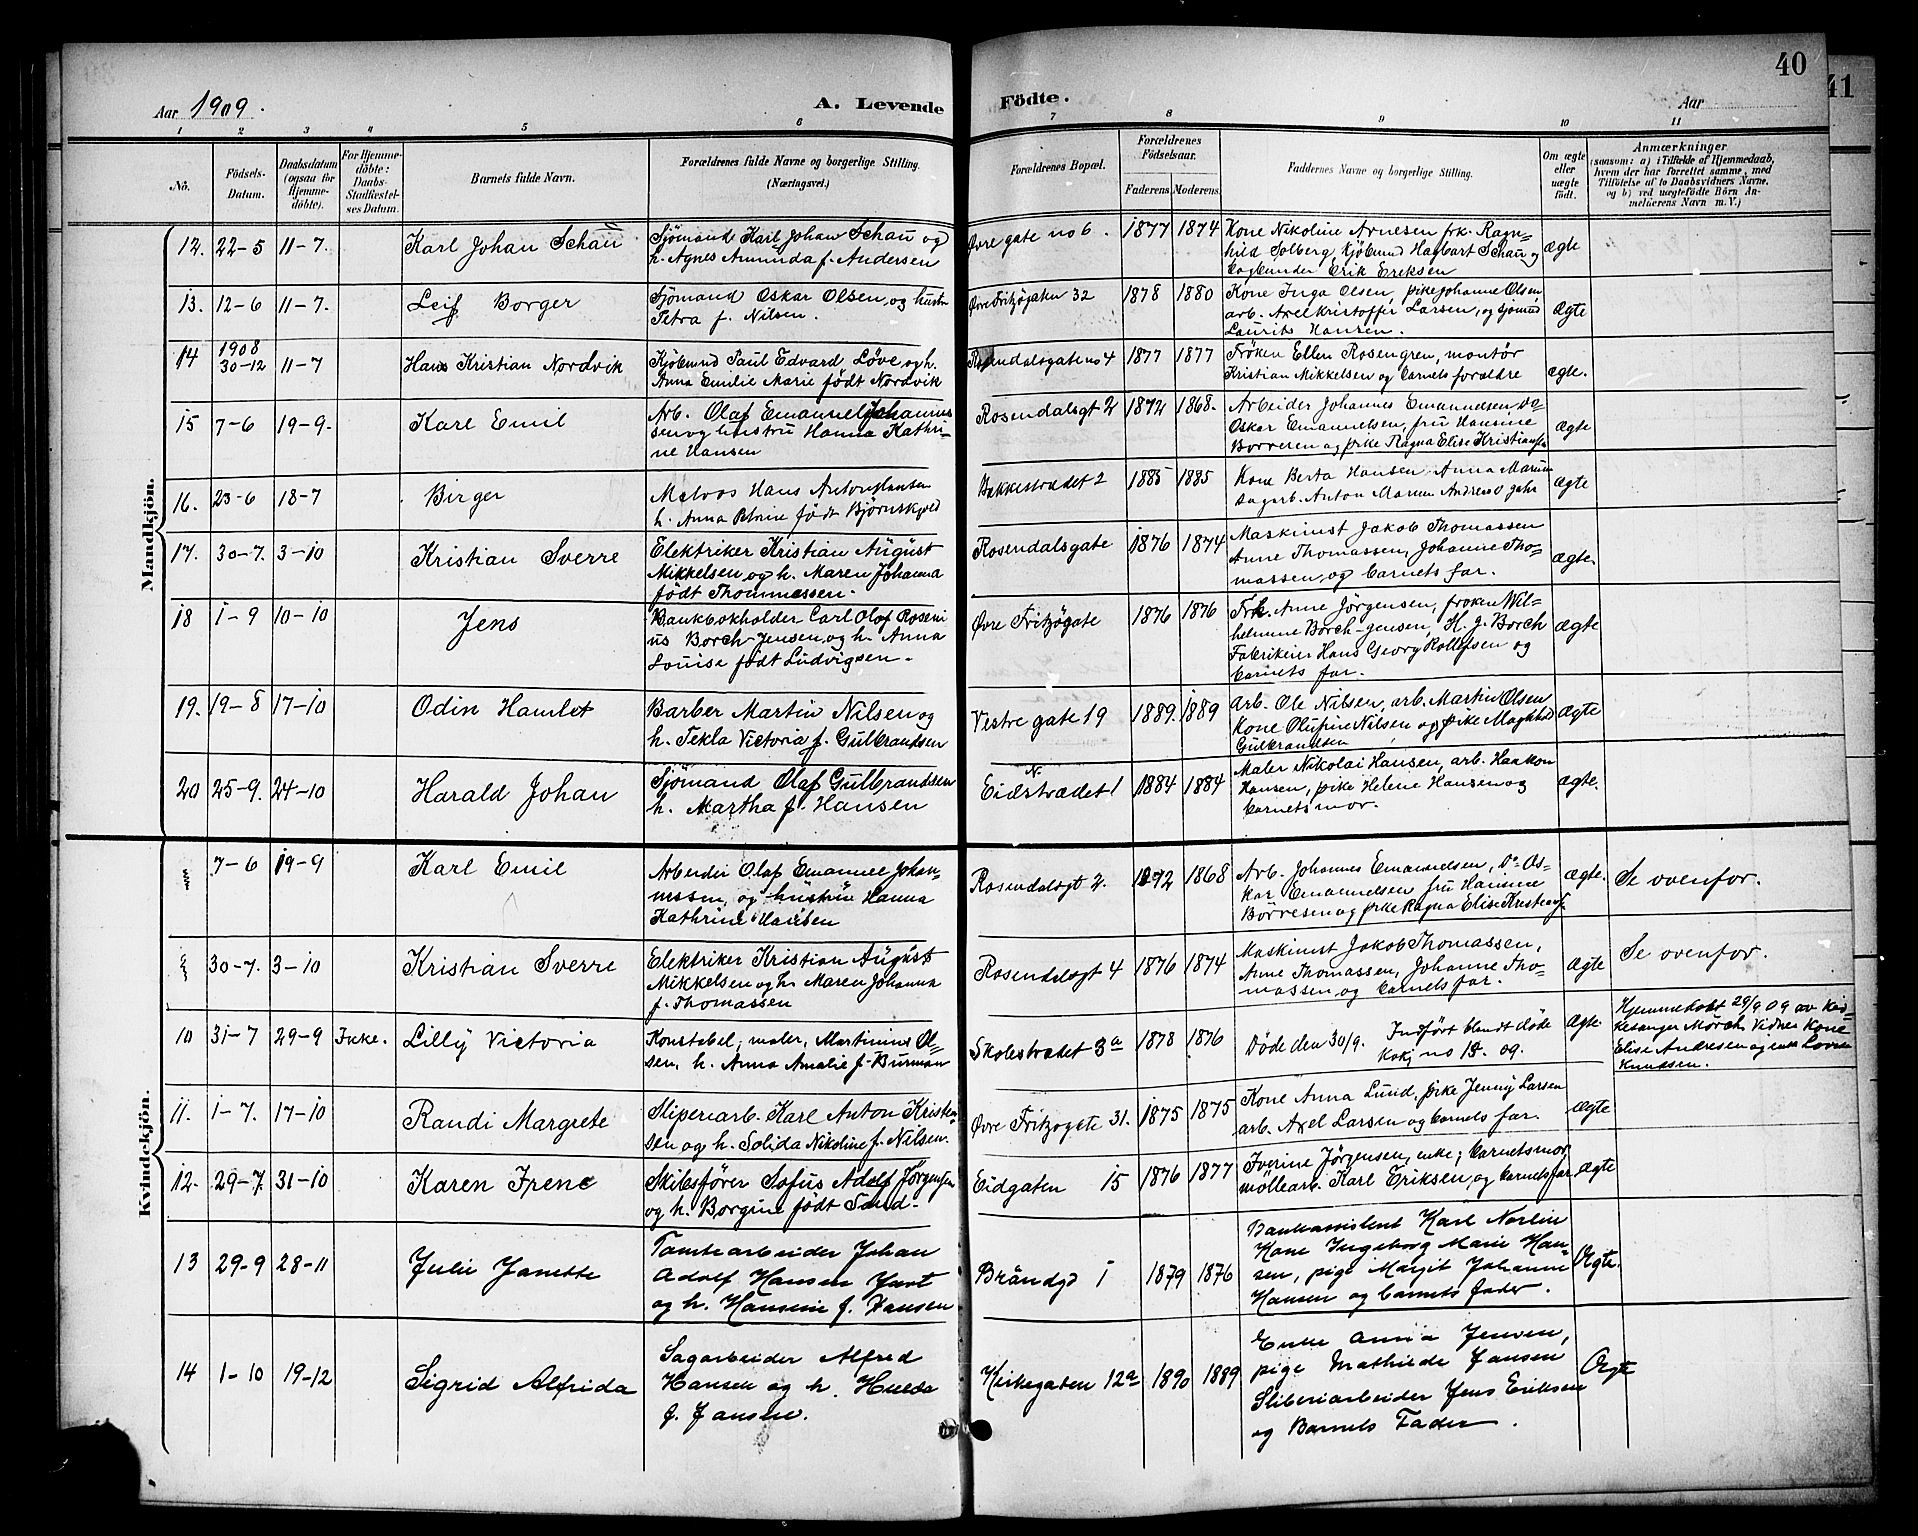 40
41
Aar 1909.
A. Levende Födte.
Aar
1 2 3 4 5 6 7 8 9 10 11
No.
Födsels-Datum.
Daabsdatum (ogsaa for Hjemmedöbte).
For Hjemmedöbte: Daabs-Stadfæstelses Datum.
Barnets fulde Navn.
Forældrenes fulde Navne og borgerlige Stilling. (Næringsvei.)
Forældrenes Bopæl.
Forældrenes Födselsaar.
Faderens. Moderens.
Faddernes Navne og borgerlige Stilling.
Om ægte eller uægte födt.
Anmærkninger
(saasom: a) i Tilfælde af Hjemmedaab,
hvem der har forrettet samme, med
Tilföielse af to Daabsvidners Navne,
og b) ved uægtefödte Börn Anmelderens Navn m. V.)
Mandkjön.
12. 22-5 11-7. Karl Johan Schau
Sjömand Karl Johan Schau og
h. Agnes Amunda f. Andersen
Øvre gate no 6. 1877 1874
Kone Nikoline Arnesen frk. Ragn-
hild Solberg, Kjöbmnd Hagbart Schau og
Erik Eriksen
ægte
13. 12-6 11-7. Leif Borger
Sjömand Oskar Olsen, og hustru
Petra f. Nilsen.
Øvre Fritzögaten 32 1878 1880
Kone Inga Olsen, pike Johanne Olsen,
arb. Axel Kristoffer Larsen, og sjömnd
Laurits Hansen.
ægte
14 1908 30-12 11-7 Hans Kristian Nordvik
Kjöbmnd Paul Edvard Löve og h.
Anna Emilie Marie födt Nordvik
Rosendalsgate no 4 1877 1877
Fröken Ellen Rosengren, montör
Kristian Mikkelsen og barnets forældre
ægte.
15 7-6 19-9. Karl Emil
Arb. Olaf Emanuel Johannes
sen og hustru Hanna Kathri-
ne Hansen
Rosendalsgt 2 1872 1868.
Arbeider Johannes Emanuelsen, Do
Oskar Emanuelsen, fru Hansine
Borresen og pike Ragna Elise Kristiansen
ægte
16. 23-6 18-7 Birger
Matros Hans Anton Hansen
h. Anna Petrine födt Björnskjold
Bakkestrædet 2 1885 1885
Kone Berta Hansen Anna
sagarb. Anton Andreas
ægte
17. 30-7. 3-10 Kristian Sverre
Elektriker Kristian August
Mikkelsen, og h. Maren Johanna
födt Thommessen.
Rosendalsgate 1876 1874
Maskinist Jakob Thomassen
Anne Thomassen, Johanne Tho-
massen, og barnets far.
ægte.
18 1-9 10-10 Jens
Bankbokholder Carl Olaf Roseni
us Borch-Jensen, og h. Anna
Louise födt Ludvigsen.
Øvre Fritzögate 1876 1876
Frk. Anne Jörgensen, froken Wil-
helmine Borch-Jensen, H. J. Borch
Fabrikeier Hans Georg Rollefsen og
barnets far.
ægte
19. 19-8 17-10 Odin Hamlet
Barber Martin Nilsen og
h. Tekla Victoria f. Gulbrandsen
Vestre gate 19 1889. 1889
Arb. Ole Nilsen, arb. Martin Olsen
Kone Olufine Nilsen og pike Maghild
Gulbrandsen
ægte
20 25-9. 24-10 Harald Johan
Sjömand Olaf Gulbrandsen
h. Martha f. Hansen
N. Eidstrædet 1 1884 1884
Maler Nikolai Hansen, arb. Haakon
Hansen, pike Helene Hansen og
barnets mor.
ægte.
Kvindekjön.
7-6 19-9 Karl Emil
Arbeider Olaf Emanuel Johan-
nssen, og hustru Hanna
Kathrine Hansen
Rosendalsgt 2. 1872 1868
Arb. Johannes Emanuelsen, Do Os-
kar Emanuelsen fru Hansine
Börresen og pike Ragna Elise Kristians
ægte. Se ovenfor.
30-7. 3-10 Kristian Sverre
Elektriker Kristian August
Mikkelsen og h. Maren Johanna
f. Thomassen
Rosendalsgt 4 1876 1874
Maskinist Jakob Thomassen,
Anne Thomassen, Johanne Tho-
massen, og barnets far.
ægte Se ovenfor.
10 31-7 29-9 Ikke. Lilly Victoria
Konstabel, maler, Martinius Ol-
sen, h. Anna Amalie f. Burman
Skolestrædet 3a 1878 1876
Döde den 30/9. Indfört blandt döde
no 18. 09.
ægte
Hjemmedöbt 29/9 09 av Kir-
kesanger Mörch. Vidner Kone
Elise Andresen og enke
Knudsen.
11. 1-7. 17-10 Randi Margrete
Sliperiarb. Karl Anton Kristen
sen og h. Solida Nikoline f. Nilsen.
Øvre Fritzogate 31. 1875 1875
Kone Anna Lund, pike Jenny Larsen
arb. Axel Larsen og barnets far.
ægte
12. 29-7. 31-10 Karen Irene
Skibsförer Sofus Adolf Jörgensen
og h. Borgine födt Sand.
Eidgaten 15 1876 1877
Iverine Jörgensen, enke, barnets mor,
möllearb. Karl Eriksen, og barnets far
ægte
13 29-9 28-11 Julie Janette
Tomtearbeider Johan
Adolf Hansen
og h. Hansine f. Hansen
Brändgd 1 1879 1876
Bankassistent Karl Norlin
Kone Ingeborg Marie Han-
sen, pige Margit Johanne
Hansen og barnets fader.
Ægte.
14 1-10 19-12 Sigrid Alfrida
Sagarbeider Alfred
Hansen og h. Hulda
f. Jansen.
Kirkegaten 12a 1890 1889
Enke Anna Jensen,
pige Mathilde Jansen
Sliberiarbeider Jens Eriksen
og Barnets Fader.
Ægte